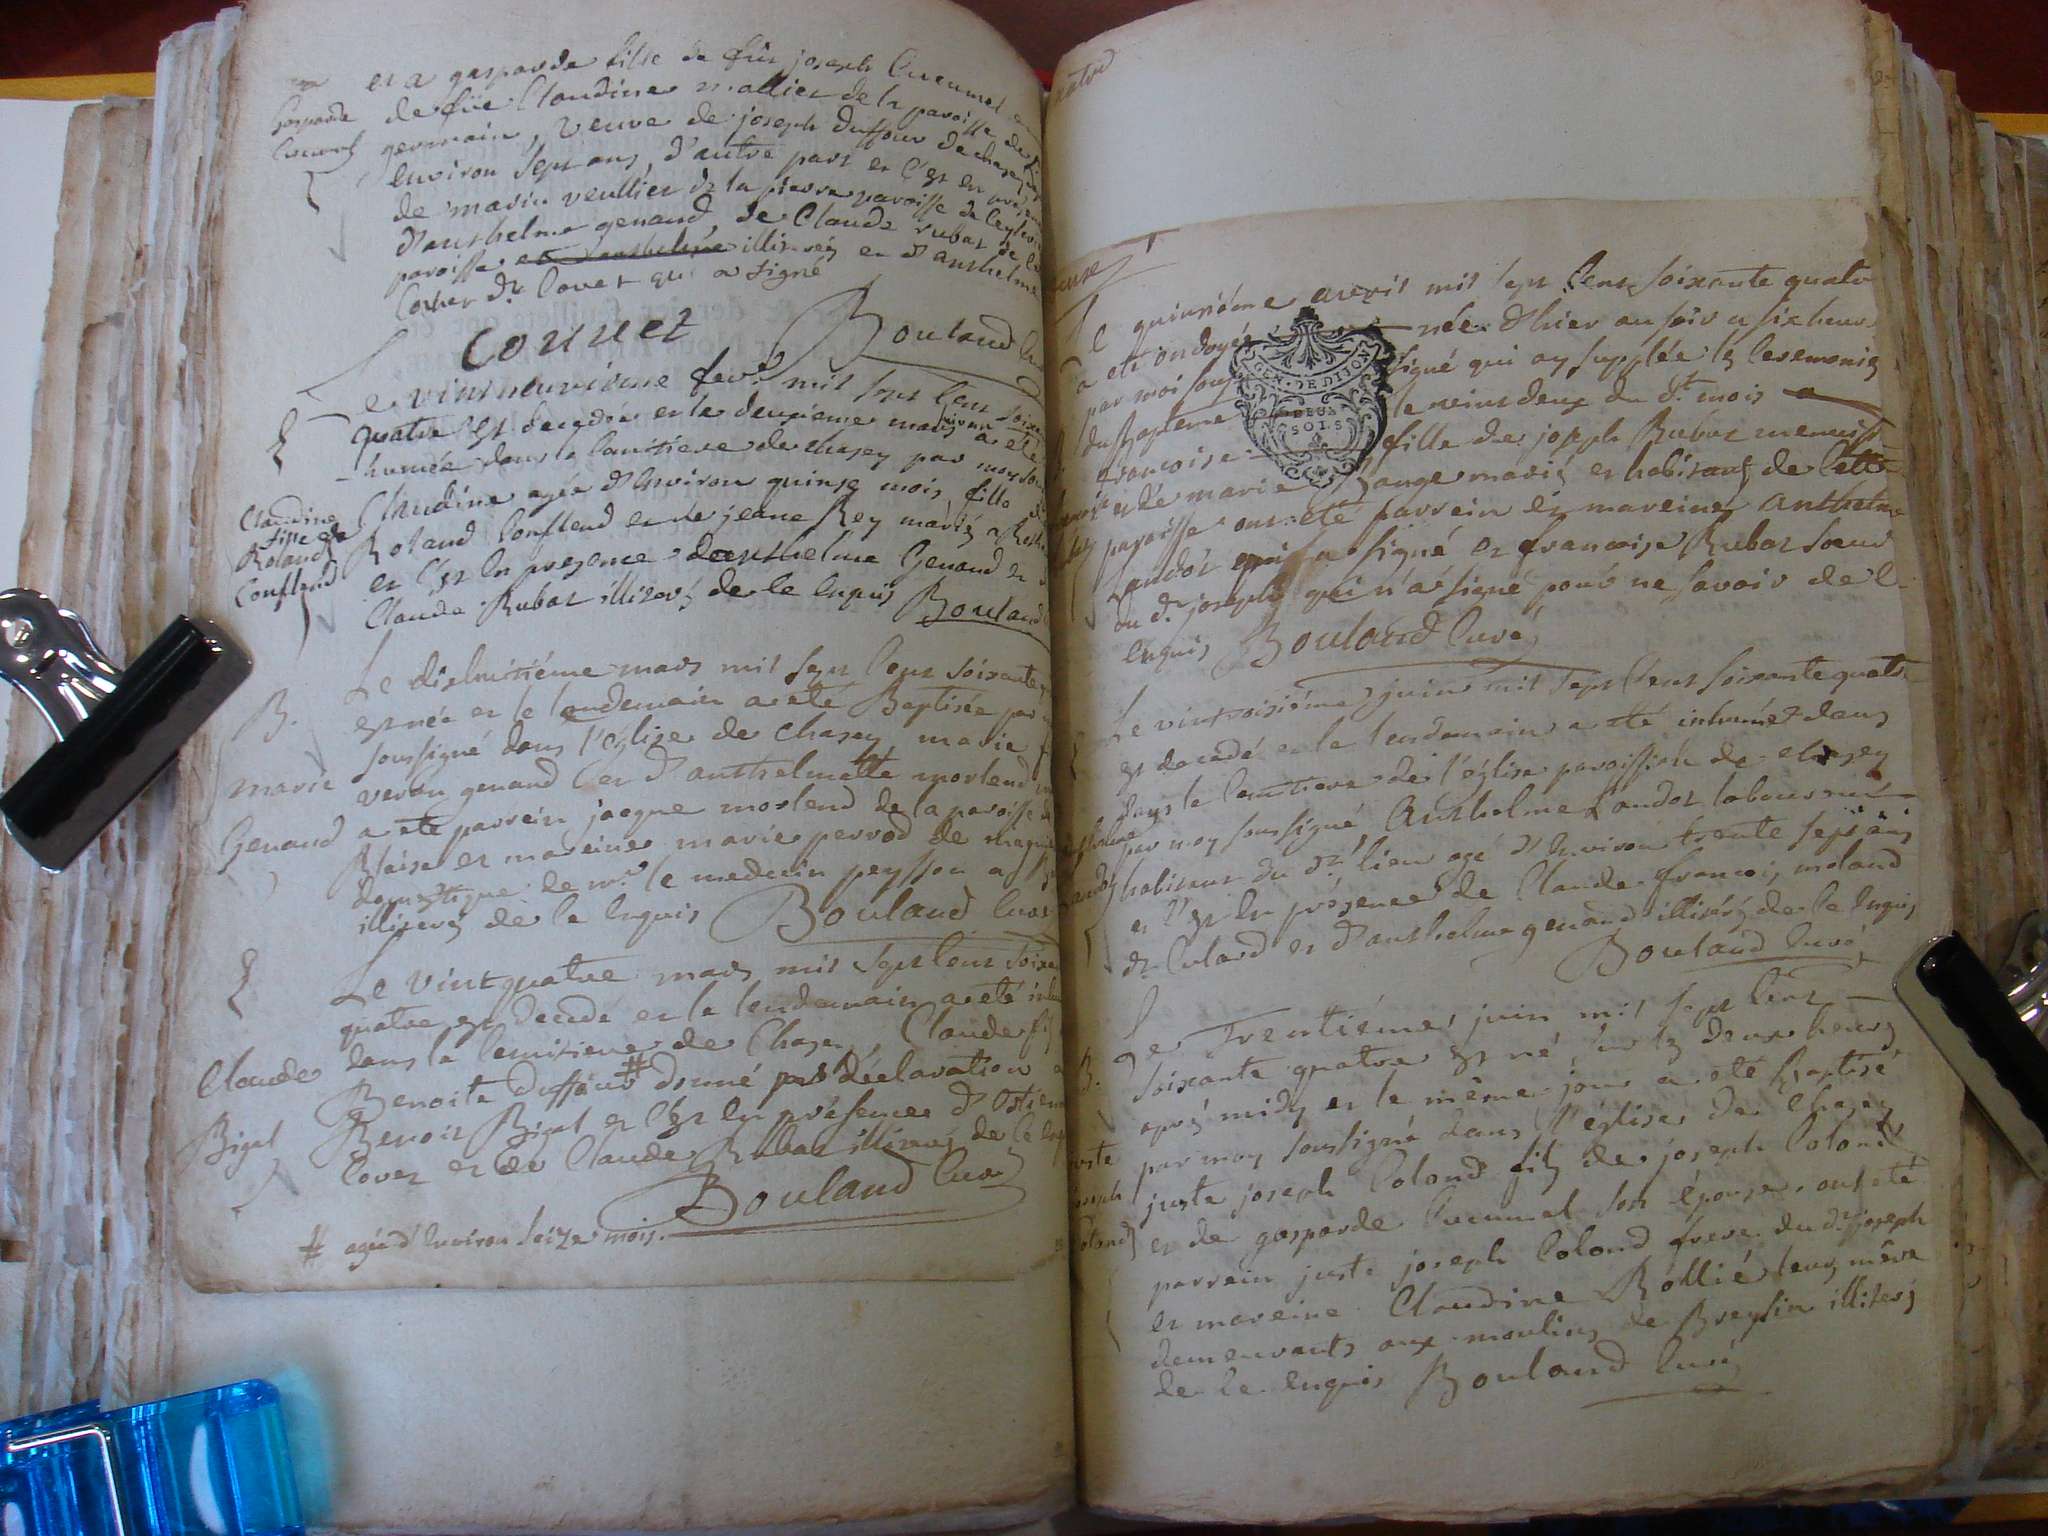 et a gasparde fille de fût joseph Cucumel
de fûe Claudine mollier de la paroisse de
germain, veuve de joseph duffour de chasey
environ sept ans, d'autre part et c'est en
de marin veullier de la pierre paroisse de Ceyserieu
d'anthelme genand, de Claude rubat de la
paroisse et anthelme illiterés et d'anthelme
Couet qui a signé
Gasparde
Cucumel
Couuet Bouland
Le vintneuvieme fevr. mil sept cent soixante
quatre est decedée et le deuxieme mars suivant a eté
-humée dans le cimitiere de chasey par moy
Claudine agée d'environ quinze mois fille de
Roland Conflend et de jeane Rey mariés
et c'est en presence d'anthelme Genand et
Claude Rubat illiterés de ce enquis Bouland
Claudine
fille de
Roland
Conflend
Le dixhuitiéme mars mil sept cent soixante
est née et le landemain a eté Baptisée par
soussigné dans l'eglise de chasey marie
genand et d'anthelmette morlend
a eté parrein jacque morlend de la paroisse de
Blaise et mareine marie perrod de
domestique de mr. le medecin peysson
illiterés de ce enquis Bouland curé
B.
marie
Genand
Le vintquatre mars mil sept cent soixante
quatre est decedé et le lendemain a eté
dans le cemitiere de Chasey, Claude fils
Benoite duffour # donné par déclaration a
Benoit Bigat et c'est en présence d'Estienne
Covet et de Claude Rubat illiterés de ce enquis
Bouland Curé
Claude
Bigat
# agé d'environ seize mois.
Le quinziéme avril mil sept Cent soixante quatre
a eté ondoyée née d'hier au soir a six heures
par moi sous signé qui ay supplée les ceremonies
du Bapteme le vint deux du dt. mois a
francoise fille de joseph Rubat menuisier
et de marie Ange mariés et habitants de cette
paroisse ont eté parrein et mareine Anthelme
Landot qui a signé et francoise Rubat soeur
du dt. joseph qui n'a signé pour ne savoir de ce
enquis Bouland Curé
GEN. DE DIJON
DEUX
SOLS
Le vintroisiéme juin mil sept Cent soixante quatre
est decedé et le lendemain a eté inhumé dans
dans le cemitiere de l'église paroissiale de chasey
par moy soussigné Anthelme Landot laboureur
habitant du dt. lieu agé d'environ trente sept ans
et c'est en présence de Claude francois moland
de Culard et d'anthelme genand illiterés de ce enquis
Bouland curé
Le Trentiéme juin mil sept Cent
soixante quatre est né, sur les deux heures
aprés midy et le même jour a eté baptisé
par moy soussigné dans l'église de Chasey
juste joseph Colond fils de joseph Colond
et de gasparde Cucumel son épouse, ont eté
parrein juste joseph Colond frere du dt. joseph
et mareine Claudine Rollié leur mére
demeurants aux moulins de Breysin illiterés
de ce enquis Bouland Curé
B.
juste
joseph
Colond